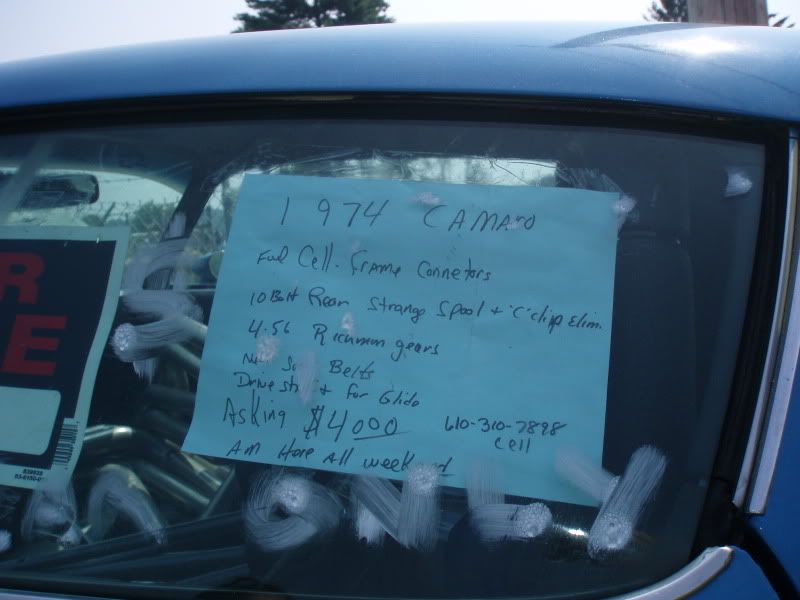 R
E
839928
1974 CAMARO
Fuel Cell - Frame Connetors
10 Bolt Rear Strange Spool + "C" clip Elim.
4.56 Richmon gears
New Belts
Drive for Glide
Asking $4000
610-310-7898
Cell
Am Here All weekend
ONLY